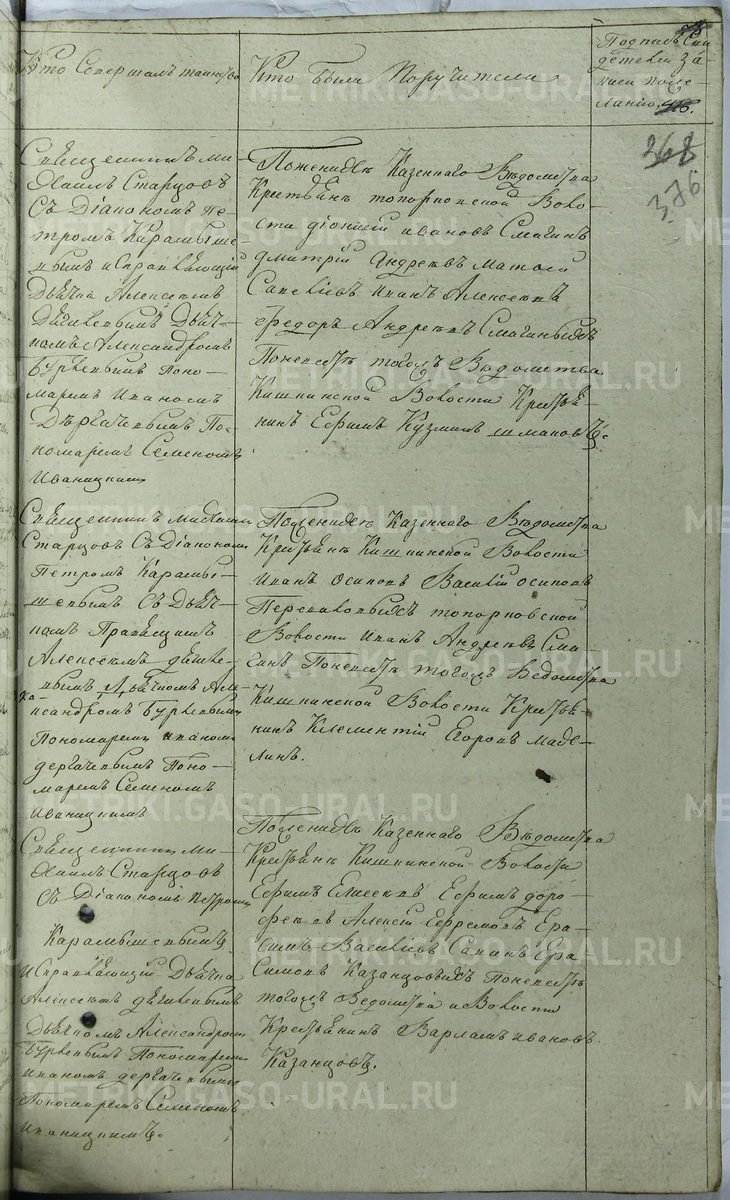 Кто Совершалъ таинство
Кто были Поручители
Подпись Сви
детелей за-
писи поже-
ланію.
268
376
Священникъ Ми
хаилъ Старцовъ
Съ Діакономъ Пе-
тромъ Карамыше
вымъ исправляющій
Дьячка Алексеемъ
Дягилевымъ Дьяч-
комъ Александромъ
Бурневымъ Поно-
маремъ Иваномъ
Дергачевымъ По-
номаремъ Семеномъ
Иваницкимъ
Поженихѣ Казеннаго Вѣдомства
Крестьянъ топорковской Воло-
сти діонисій ивановъ Смагинъ
дмитрій Андреевъ
Савельевъ иванъ Алексеевъ
федоръ Андреевъ Смагиныхъ
Поневестѣ тогожъ Вѣдомства
Кишкинской Волости Крестья-
нинъ Ефимъ Кузминъ шмаковъ.
Священникъ Михаилъ
Старцовъ Съ Діакономъ
Петромъ Карамы-
шевымъ Съ Дьяч-
комъ Правящимъ
Алексеемъ дягиле-
вымъ Дьячкомъ Але-
ксандромъ Бурневымъ
Пономаремъ иваномъ
дергачевымъ Поно-
маремъ Семеномъ
Иваницкимъ
Поженихѣ Казеннаго Вѣдомства
Крестьянъ Кишкинской Волости
иванъ осиповъ Василий осиповъ
топорковской
Волости иванъ Андреевъ Сма-
гинъ Поневестѣ тогожъ Ведомства
Кишкинской Волости Крестья-
нинъ Клементій Егоровъ Маде-
линъ.
Священникъ Ми-
хаилъ Старцовъ
Съ Діакономъ Петромъ
Карамышевымъ
Исправляющій Дьячка
Алексеемъ дягилевымъ
Дьячкомъ Александромъ
Бурневымъ Пономаремъ
иваномъ дергачевымъ
Пономаремъ Семеномъ
Иваницкимъ.
Поженихѣ Казеннаго Вѣдомства
Крестьянъ Кишкинской Волости
Ефимъ Елисеевъ Ефимъ доро-
феевъ Алексей Ефремовъ Ера-
симъ Васильевъ Ера
симовъ Казанцовыхъ Поневестѣ
тогожъ Ведомства и Волости
Крестьянинъ Варламъ ивановъ
Казанцовъ.
METRIKI.GASO-URAL.RU